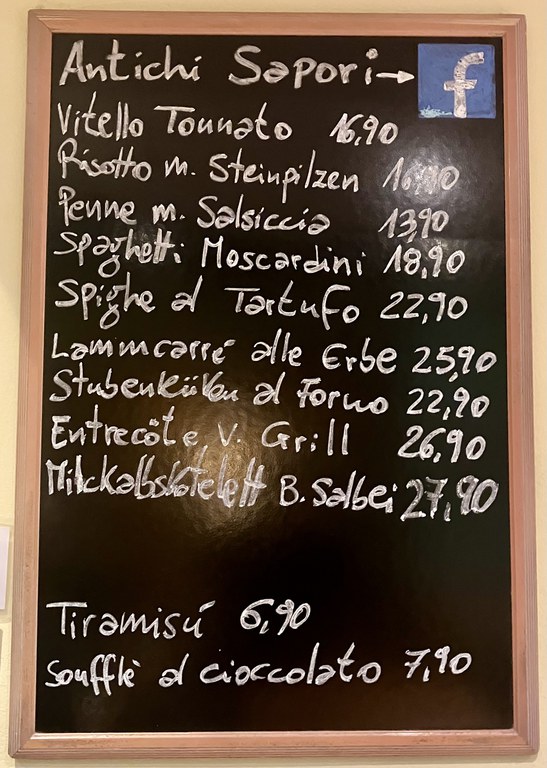 Antichi Sapori → f
Vitello Tonnato 16,90
Risotto m. Steinpilzen
Penne m. Salsiccia 13,90
Spaghetti Moscardini 18,90
Spighe al Tartufo 22,90
Lammcarré alle Erbe 25,90
Stubenküken al Forno 22,90
Entrecôte v. Grill 26,90
Milckalbskotelett B. Salbei 27,90
Tiramisú 6,90
Soufflè al cioccolato 7,90